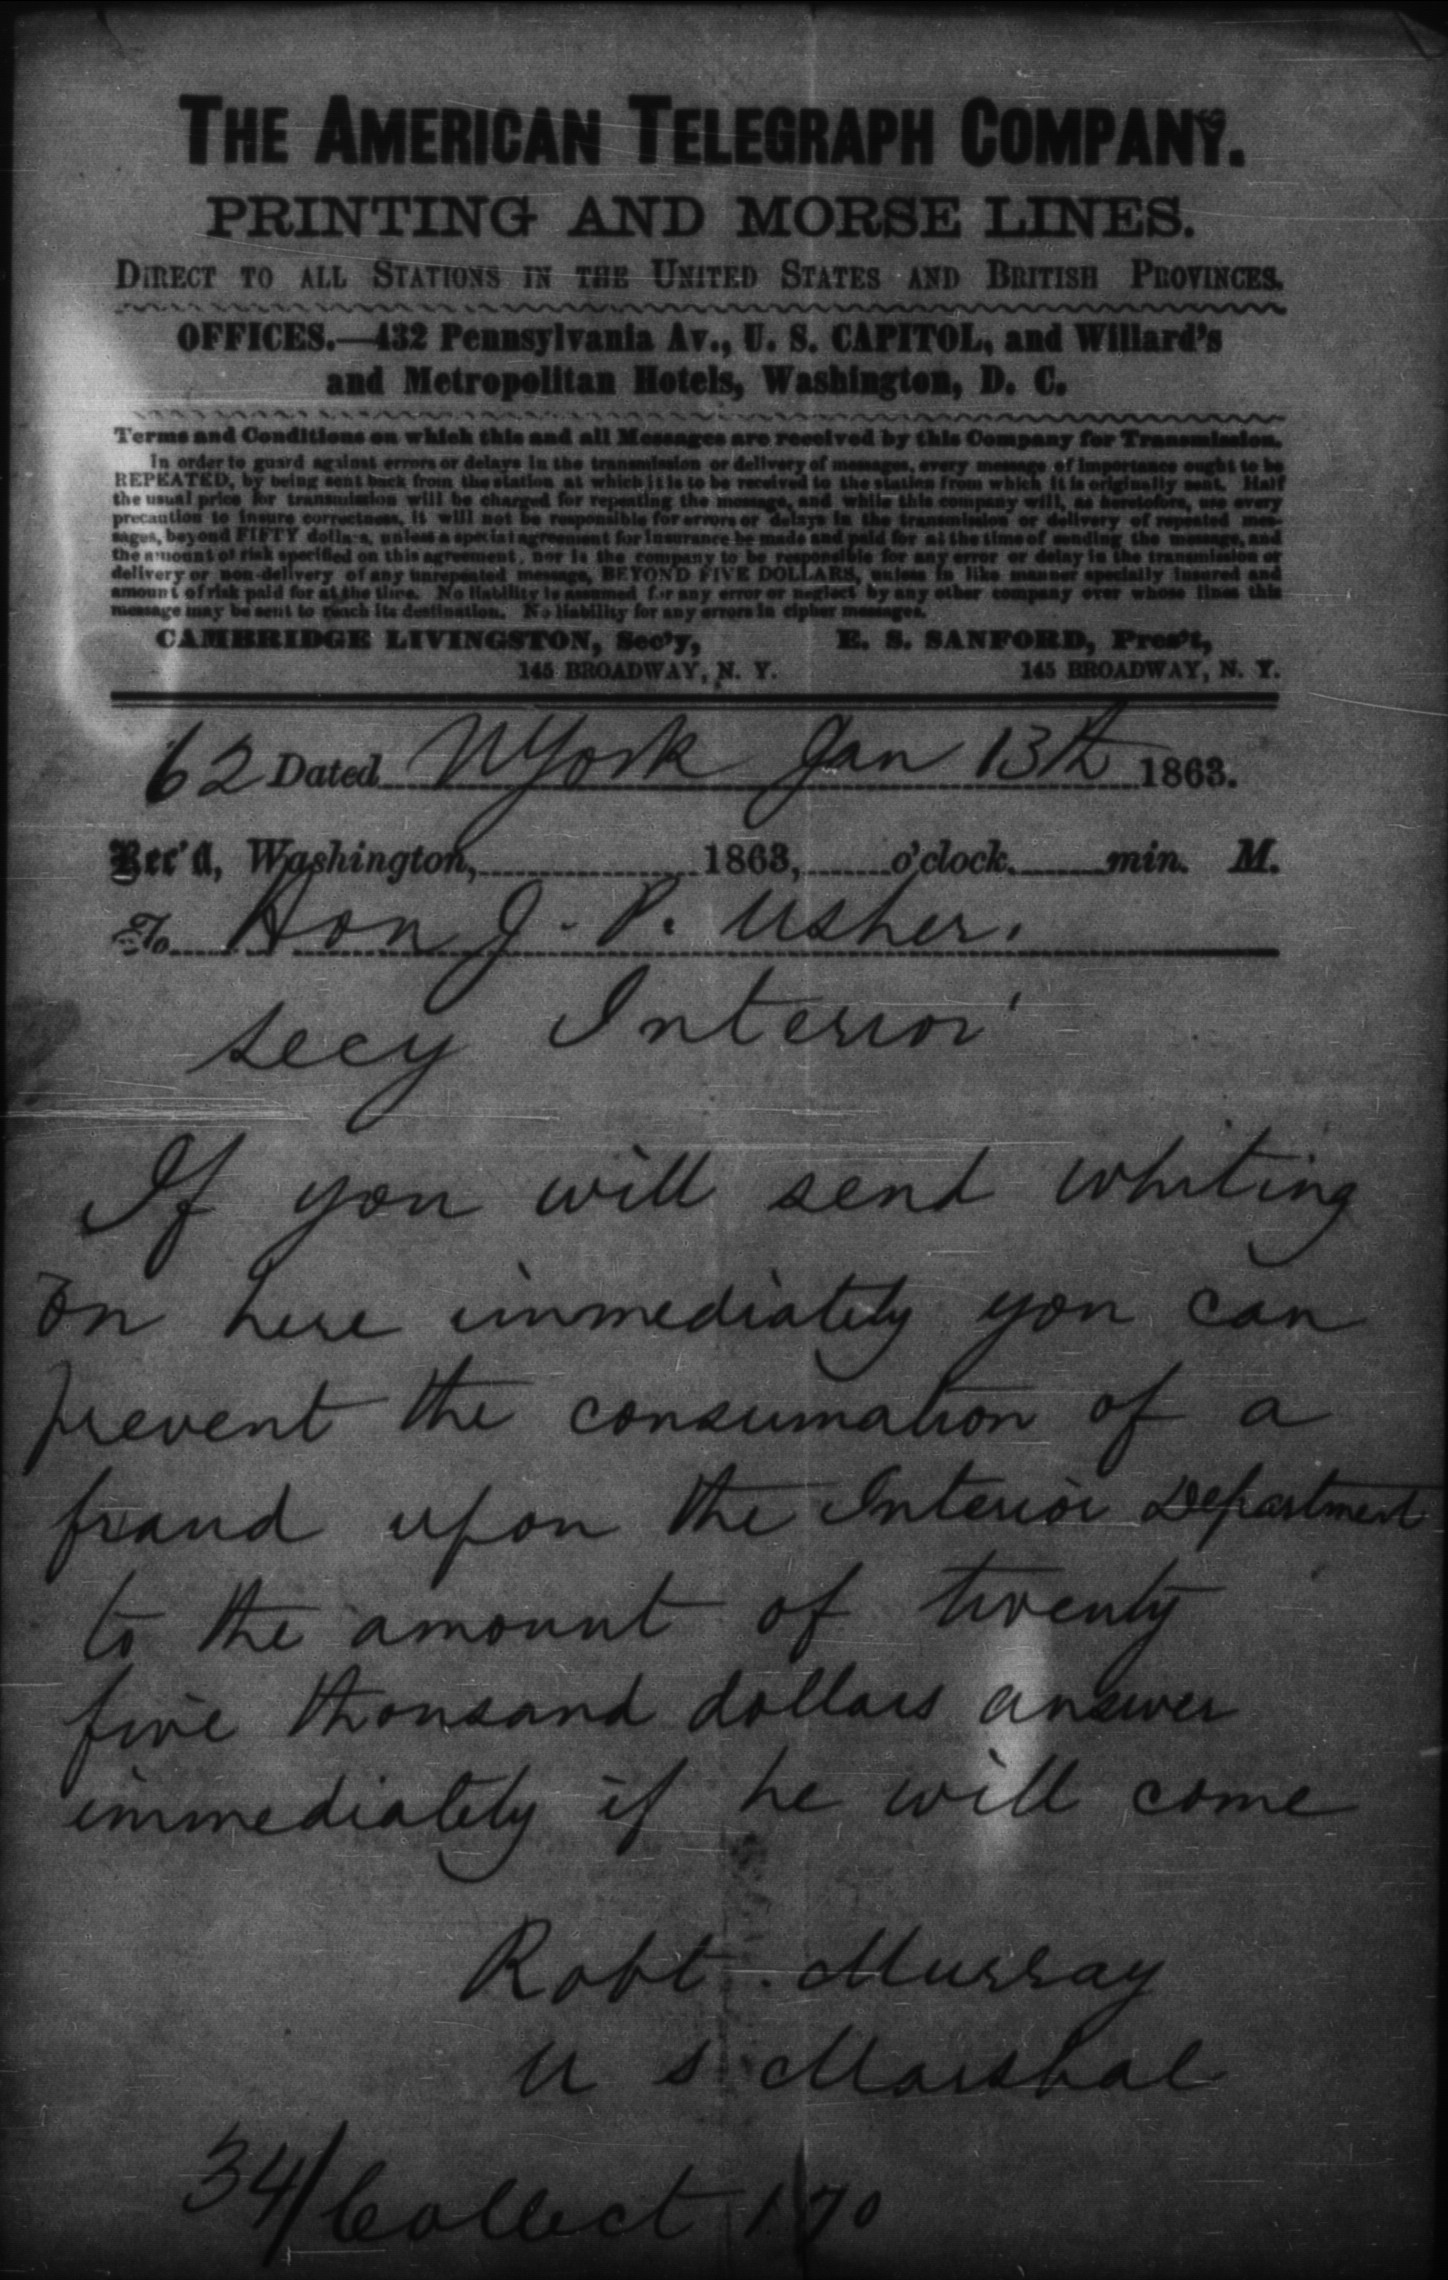 THE AMERICAN TELEGRAPH COMPANY.
PRINTING AND MORSE LINES.
DIRECT TO ALL STATIONS IN THE UNITED STATES AND BRITISH PROVINCES.
OFFICES.—432 Pennsylvania Av., U. S. CAPITOL, and Willard's
and Metropolitan Hotels, Washington, D. C.
Terms and Conditions on which this and all Messages are received by this Company for Transmission.
In order to guard against errors or delays in the transmission or delivery of messages, every message of importance ought to be
REPEATED, by being sent back from the station at which it is to be received to the station from which it is originally sent. Half
the usual price for transmission will be charged for repeating the message, and while this company will, as heretofore, use every
precaution to insure correctness, it will not be responsible for errors or delays in the transmission or delivery of repeated mes-
sages, beyond FIFTY dollars, unless a special agreement for insurance be made and paid for at the time of sending the message, and
the amount of risk specified on this agreement, nor is the company to be responsible for any error or delay in the transmission or
delivery or non-delivery of any unrepeated message, BEYOND FIVE DOLLARS, unless in like manner specially insured and
amount of risk paid for at the time. No liability is assumed for any error or neglect by any other company over whose lines this
message may be sent to reach its destination. No liability for any errors in cipher messages.
CAMBRIDGE LIVINGSTON, Sec'y, E. S. SANFORD, Pres't,
145 BROADWAY, N. Y. 145 BROADWAY, N. Y.
62 Dated N York Jan 13th 1863.
Rec'd, Washington, 1863, o'clock, min. M.
To Hon J. P. Usher.
Secy Interior
If you will send Whiting
on here immediately you can
prevent the consumation of a
fraud upon the Interior Department
to the amount of twenty
five thousand dollars answer
immediately if he will come
Robt. Murray
U S Marshal
34/ Collect 1 70